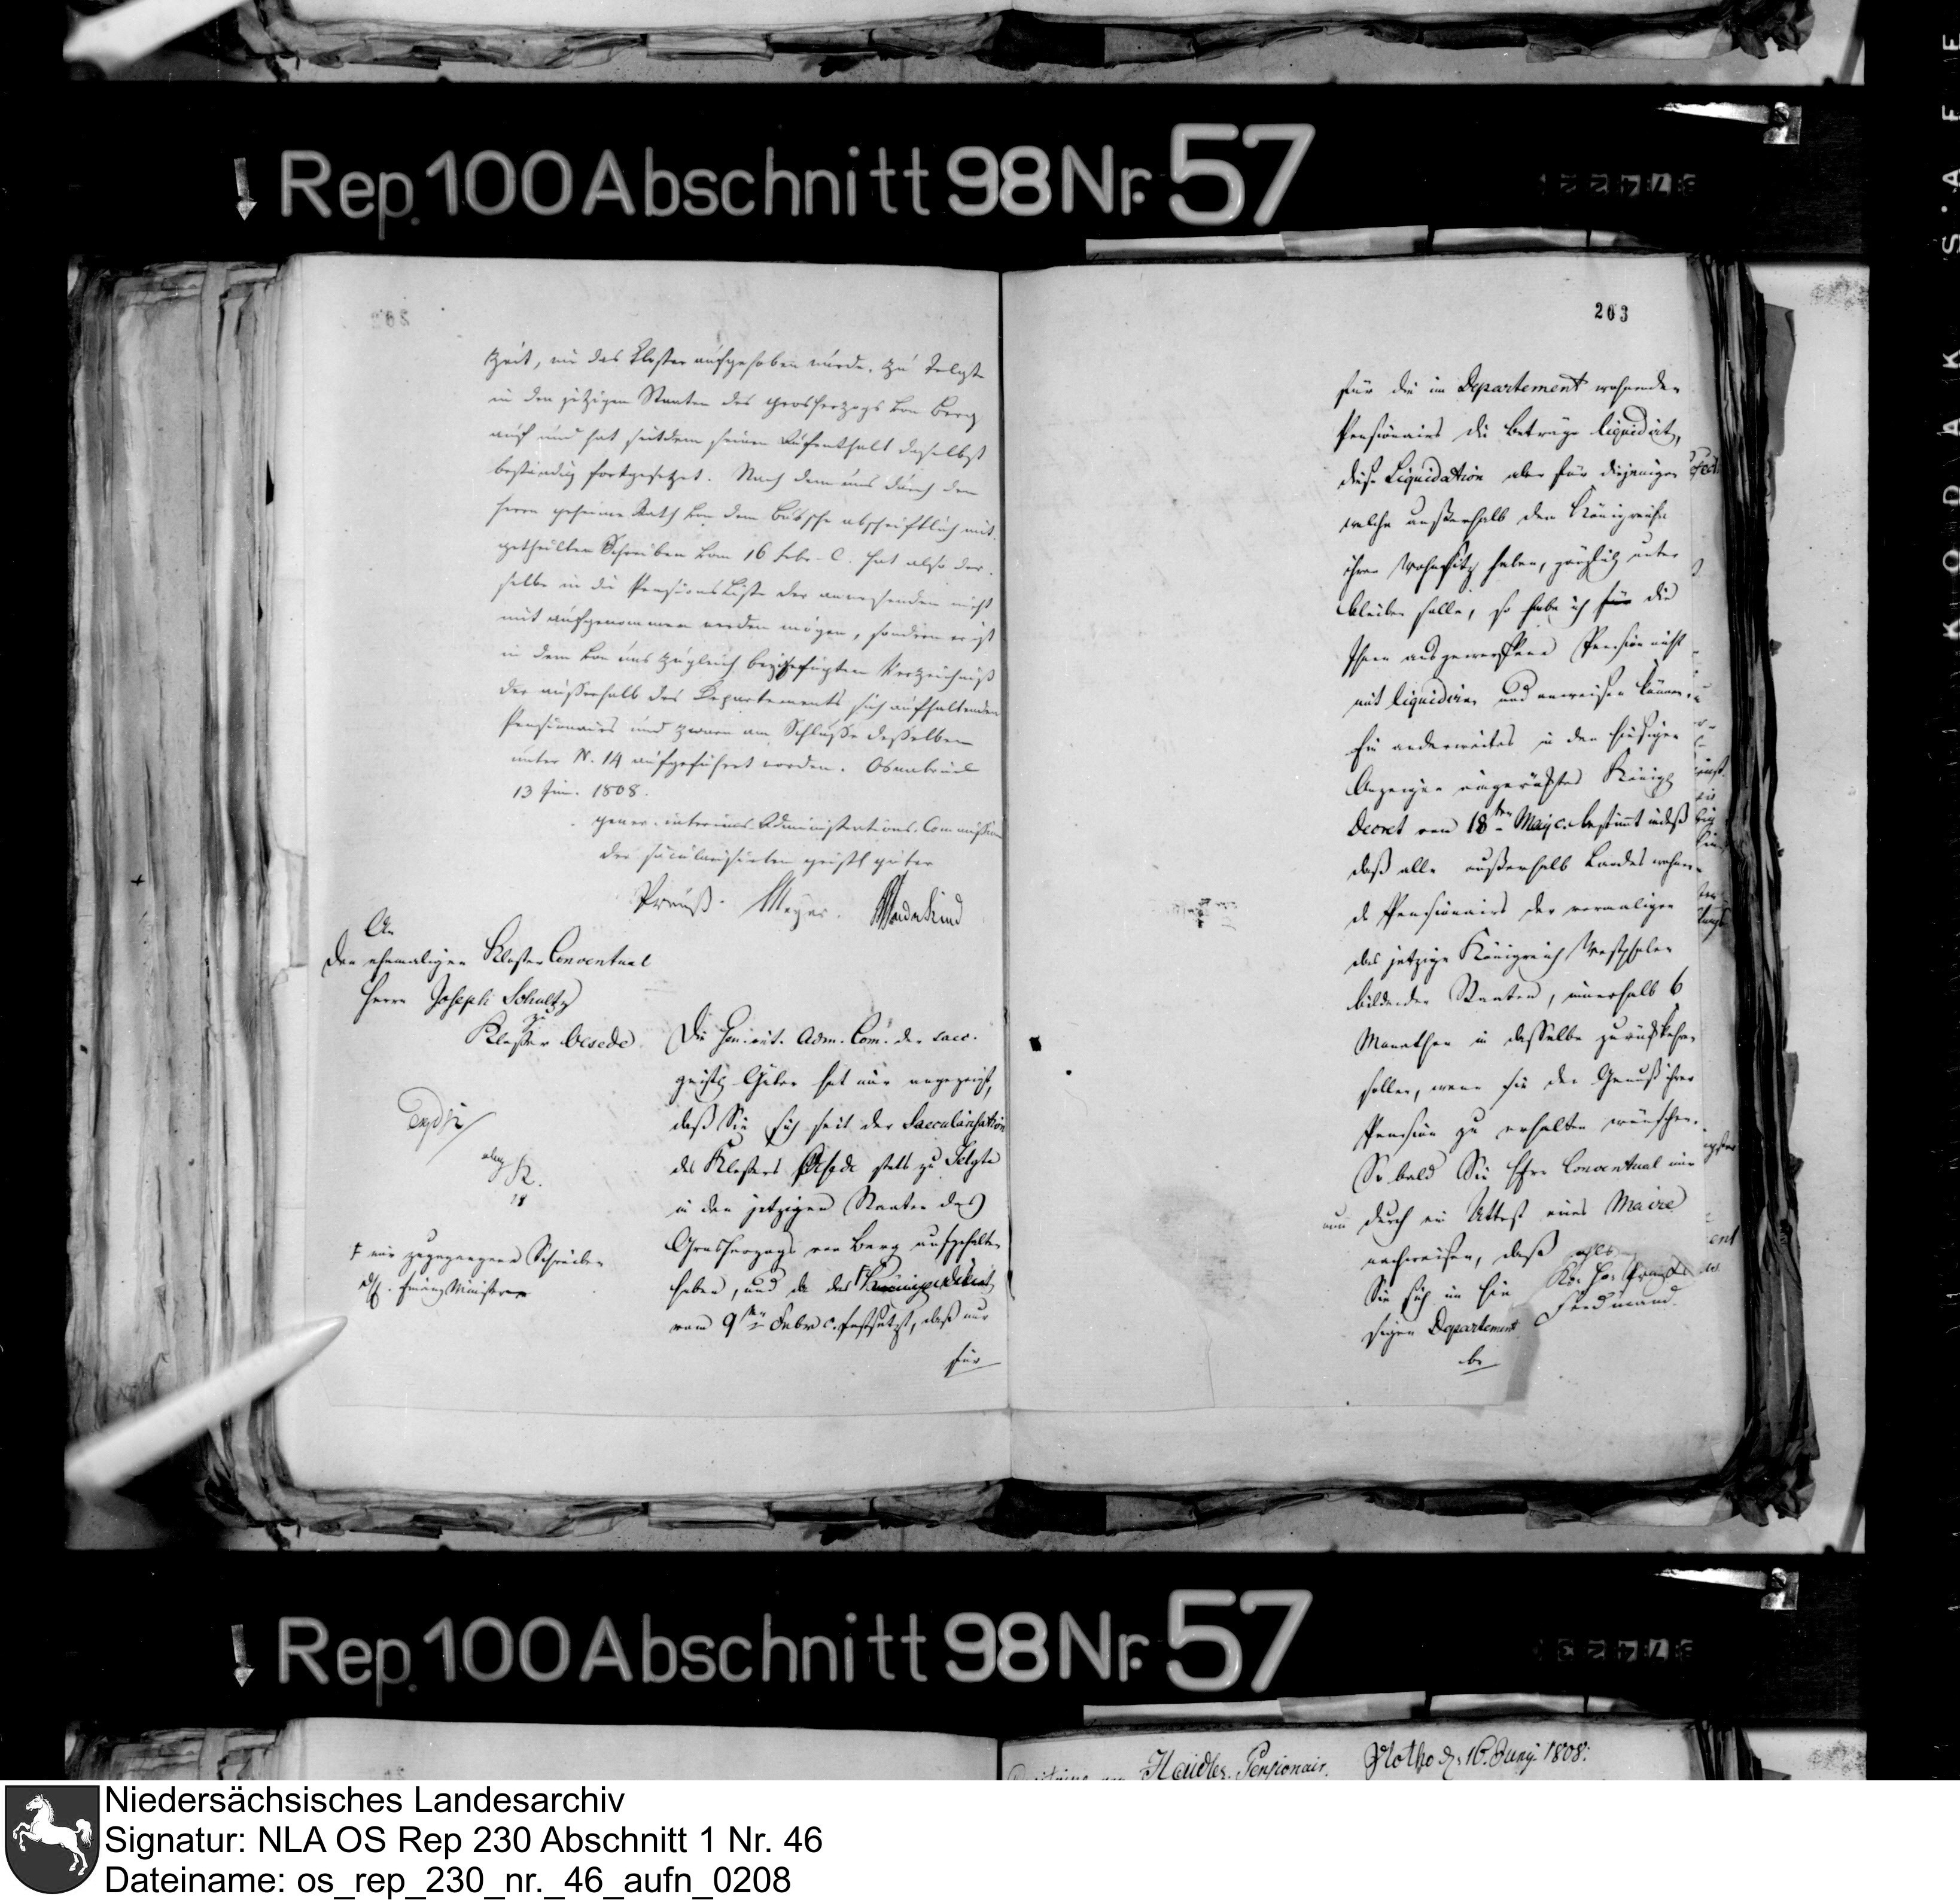 Rep. 100 Abschnitt 98 Nr. 57
Zeit, wie das Kloster aufgehoben wurde, zu Telgte
in den jetzigen Staaten des Grosherzogs von Berg
auf und hat seitdem seinen Aufenthalt daselbst
beständig fortgesetzet. Nach dem uns durch den
Herrn geheime Rath von dem Bussche abschriftlich mit-
getheilten Schreiben vom 16 Febr. C. hat also der-
selbe in die Pensions Liste der anwesenden nicht
mit aufgenommen werden mögen, sondern er ist
in dem von uns zugleich beygefügten Verzeichniß
der ausserhalb des Departements sich aufhaltenden
Pensionairs und zwaren am Schlusse desselben
unter N. 14 aufgeführet worden. Osnabrück
13 Jun. 1808.
gener. interims Administrations-Commission
der säcularisirten geistl. Güter
Preuß. Meyer.
An
den ehemaligen Kloster Conventual
Herrn Joseph Schultz
zu
Kloster Oesede
Die Gen. int. Adm. Com. der saec.
geistl. Güter hat mir angezeigt,
daß Sie sich seit der Saecularisation
des Klosters Oesede stets zu Telgte
in den jetzigen Staaten des
Grosherzogs von Berg aufgehalten
haben, und da das
vom 9ten Febr. c. festsetzt, daß nur
für
mir zugegangene Schreiben
203
für die im Departement wohnenden
Pensionairs die Beträge liquidirt,
diese Liquidation aber für diejenigen
welche ausserhalb des Königreichs
ihren Wohnsitz haben, gänzlich unter
bleiben solle, so habe ich für die
Ihnen ausgeworfene Pension nicht
mit liquidiren und anweisen können.
Ein anderweites in den hiesigen
Anzeigen eingerücktes Königl.
Decret vom 18ten May c. bestimmt indeß
daß alle außerhalb Landes wohnen-
de Pensionairs der vormaligen
das jetzige Königreich Westphalen
bildenden Staaten, innerhalb 6
Monathen in dasselbe zurückkehren
sollen, wenn sie den Genuß ihrer
Pension zu erhalten wünschen.
So bald Sie Herr Conventual mir
nun durch ein Attest eines Maire
nachweisen, daß
Sie sich im hie
sigen Departement
be
Rep. 100 Abschnitt 98 Nr. 57
Pensionair. Vlotho d. 16. Juny 1808.
Niedersächsisches Landesarchiv
Signatur: NLA OS Rep 230 Abschnitt 1 Nr. 46
Dateiname: os_rep_230_nr._46_aufn_0208